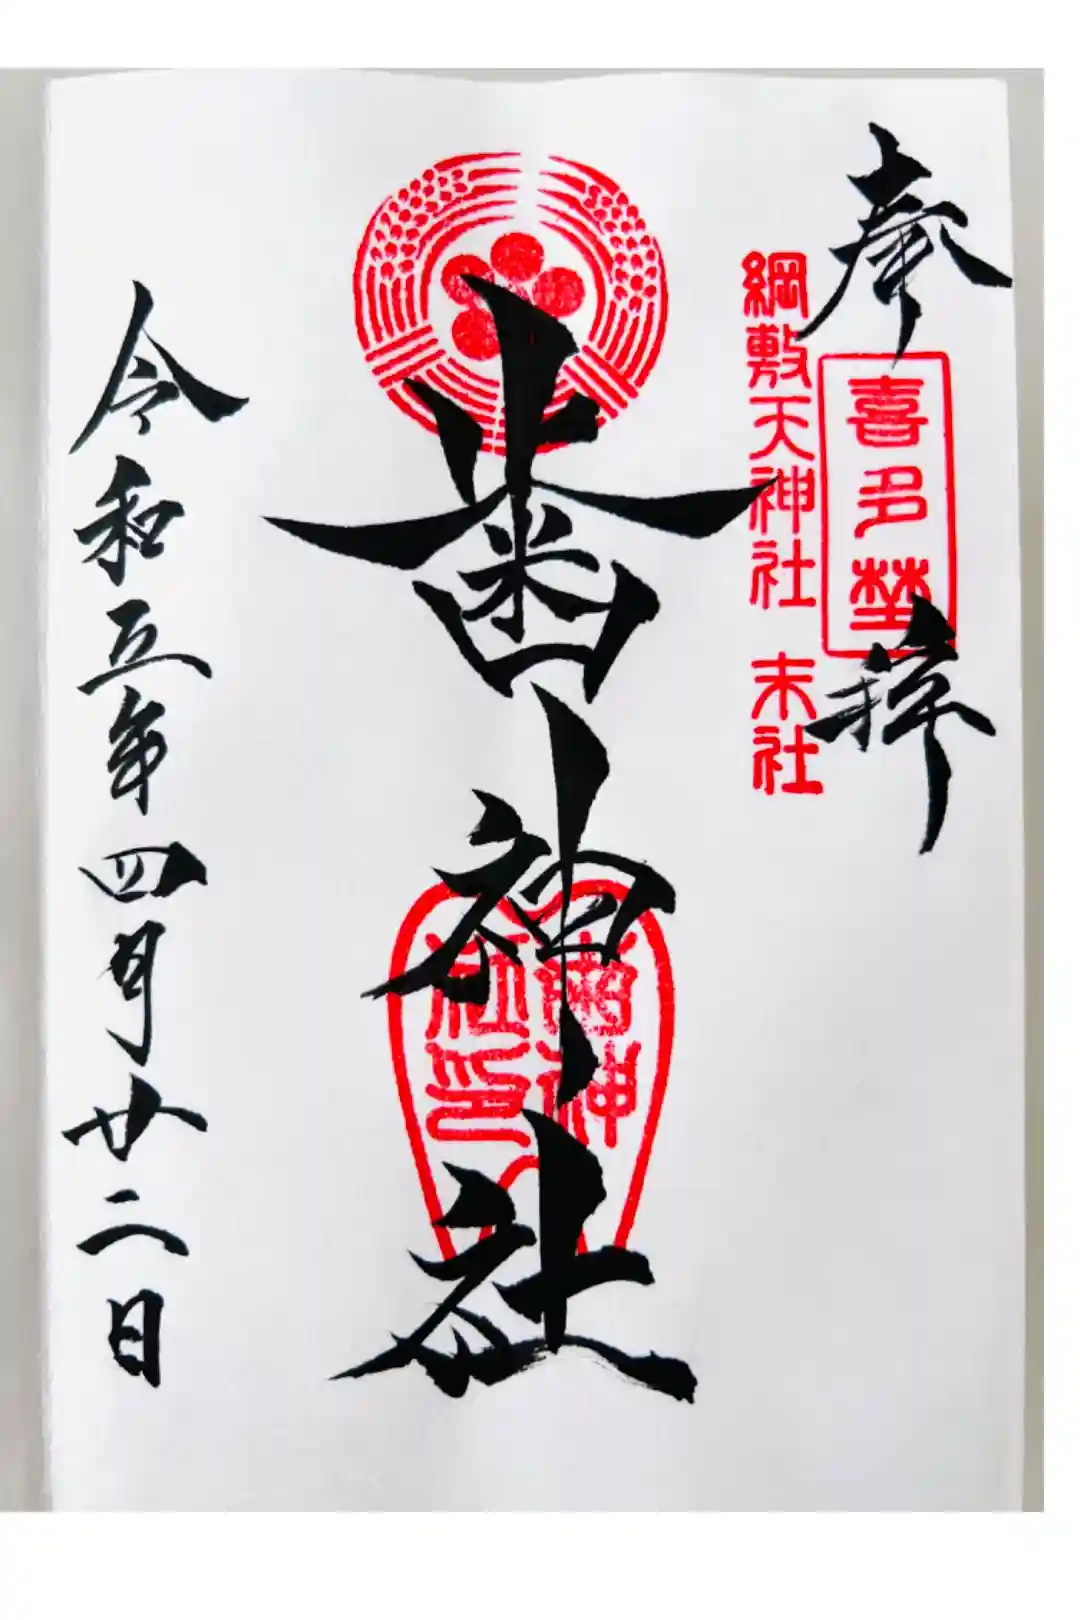 奉拝
喜多埜
綱敷天神社 末社
歯神社
歯神社印
令和五年四月廿二日